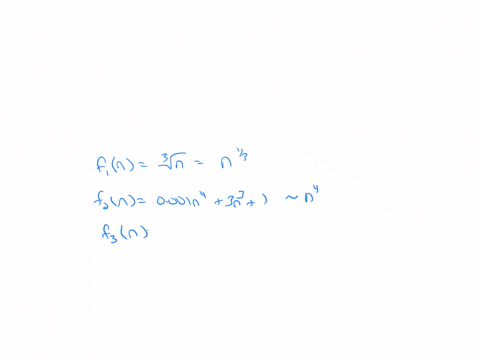 f₁(n) = ∛n = n^{1/3}
f₂(n) = 0.001n⁴ + 3n³ + 1 ~ n⁴
f₃(n)